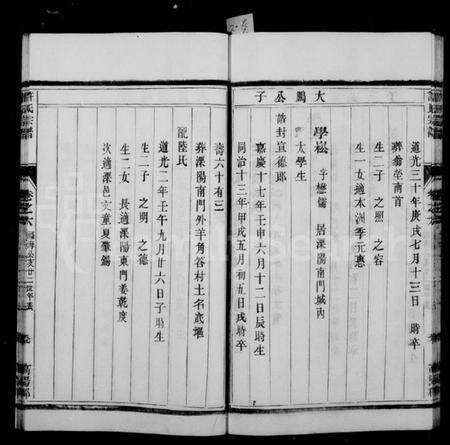 大鵬公子
道光三十年庚戌七月十三日 時卒
葬翁榮南首
生二子 之照 之容
生一女適本洲季元惠
學松 字懋儒 居溧陽南門城內
太學生
誥封宣德郎
嘉慶十七年壬申六月十二日辰時生
同治十三年甲戌五月初五日戌時卒
壽六十有三
葬溧陽南門外羊角谷村土名底堰
配陸氏
道光二年壬午九月廿六日子時生
生二子 之明 之德
生二女 長適溧陽東門姜乾庚
次適溧邑文童夏肇錫
許氏宗譜
卷之六
高陽郡